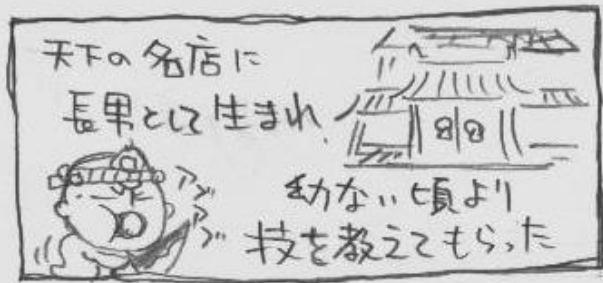 天下の名店に
長男として生まれ
幼ない頃より
技を教えてもらった